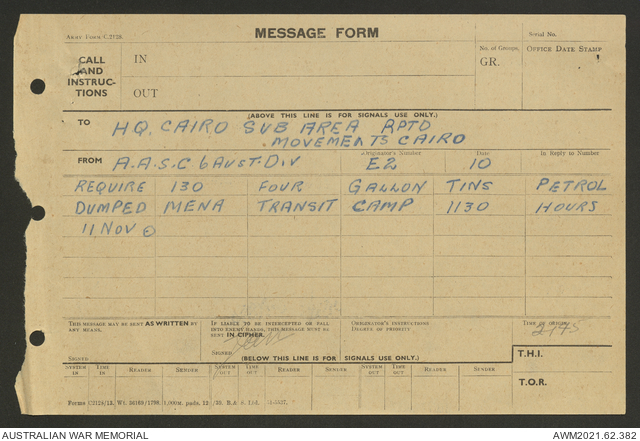 ARMY FORM C.2128.
MESSAGE FORM
Serial No.
CALL AND INSTRUCTIONS
IN
OUT
No. of Groups.
GR.
OFFICE DATE STAMP
(ABOVE THIS LINE IS FOR SIGNALS USE ONLY.)
TO HQ. CAIRO SUB AREA RPTD
MOVEMENTS CAIRO
FROM A.A.S.C. 6 AUST. DIV
Originator's Number
E2
Date
10
In Reply to Number
REQUIRE 130 FOUR GALLON TINS PETROL
DUMPED MENA TRANSIT CAMP 1130 HOURS
11 NOV
THIS MESSAGE MAY BE SENT AS WRITTEN BY ANY MEANS.
SIGNED
IF LIABLE TO BE INTERCEPTED OR FALL INTO ENEMY HANDS, THIS MESSAGE MUST BE SENT IN CIPHER.
SIGNED
ORIGINATOR'S INSTRUCTIONS
DEGREE OF PRIORITY
TIME OF ORIGIN
2145
(BELOW THIS LINE IS FOR SIGNALS USE ONLY.)
T.H.I.
SYSTEM IN TIME IN READER SENDER SYSTEM OUT TIME OUT READER SENDER SYSTEM OUT TIME OUT READER SENDER
T.O.R.
AUSTRALIAN WAR MEMORIAL
AWM2021.62.382